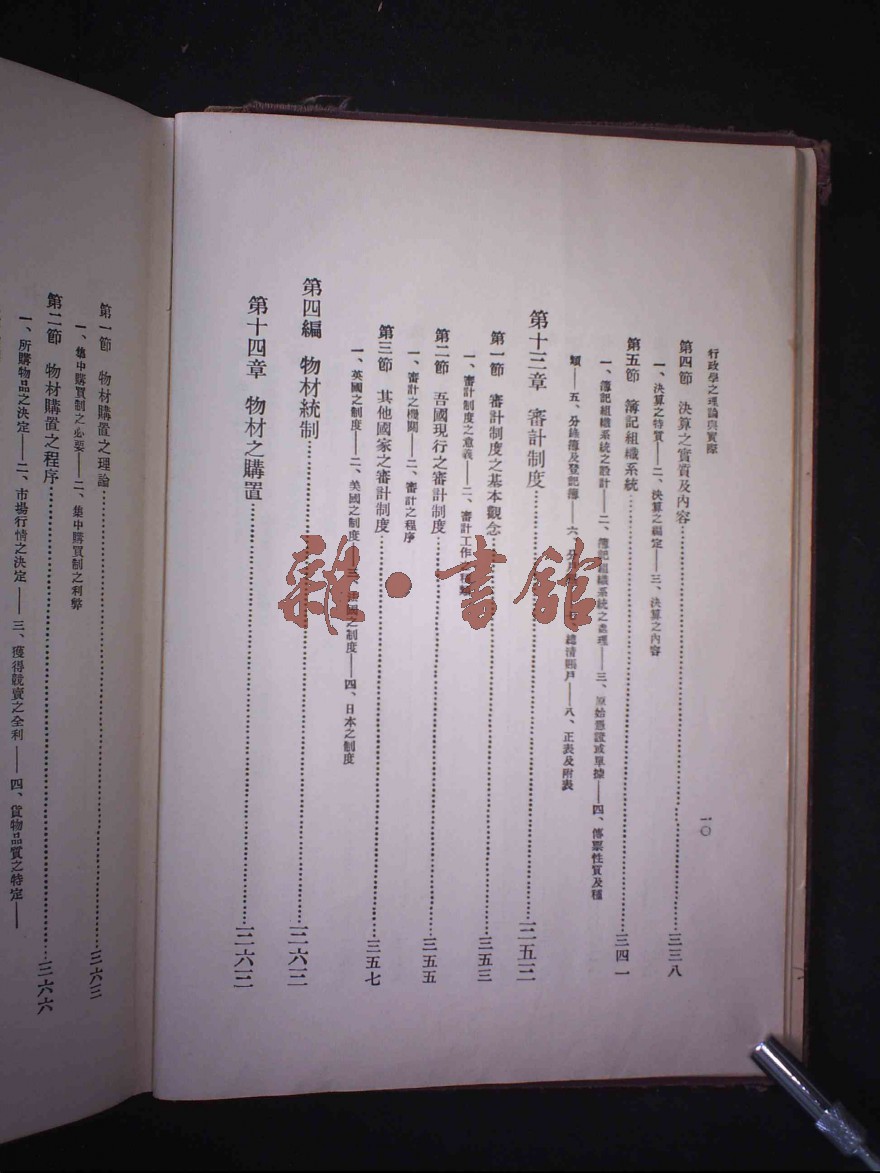 行政學之理論與實際
一〇
第四節 決算之實質及內容……三三八
一、決算之特質——二、決算之編定——三、決算之內容
第五節 簿記組織系統……三四一
一、簿記組織系統之設計——二、簿記組織系統之處理——三、原始憑證或單據——四、傳票性質及種
類——五、分錄簿及登記簿——六、分 總清賬戶——八、正表及附表
第十三章 審計制度……三五三
第一節 審計制度之基本觀念……三五三
一、審計制度之意義——二、審計工作
第二節 吾國現行之審計制度……三五五
一、審計之機關——二、審計之程序
第三節 其他國家之審計制度……三五七
一、英國之制度——二、美國之制度——三、 國之制度——四、日本之制度
第四編 物材統制……三六三
第十四章 物材之購置……三六三
第一節 物材購置之理論……三六三
一、集中購買制之必要——二、集中購買制之利弊
第二節 物材購置之程序……三六六
一、所購物品之決定——二、市場行情之決定——三、獲得競賣之全利——四、貨物品質之特定——
雜·書館